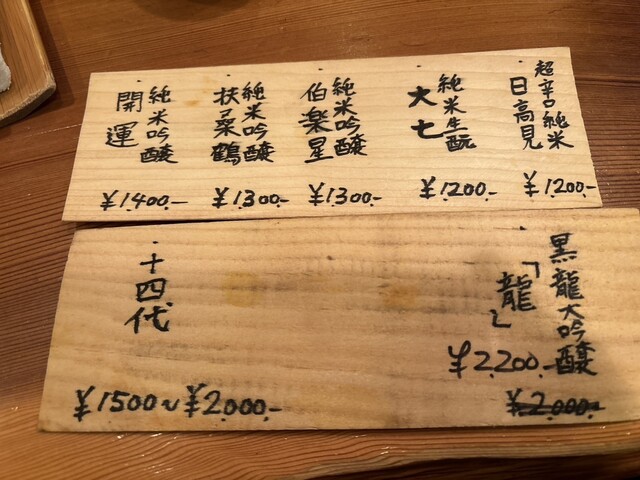 超辛口純米
日高見
¥1200-
純米生酛
大七
¥1200-
純米吟醸
伯楽星
¥1300-
純米吟醸
扶桑鶴
¥1300-
純米吟醸
開運
¥1400-
黒龍大吟醸
「龍」
¥2,200-
¥2000-
十四代
¥1500~¥2,000-